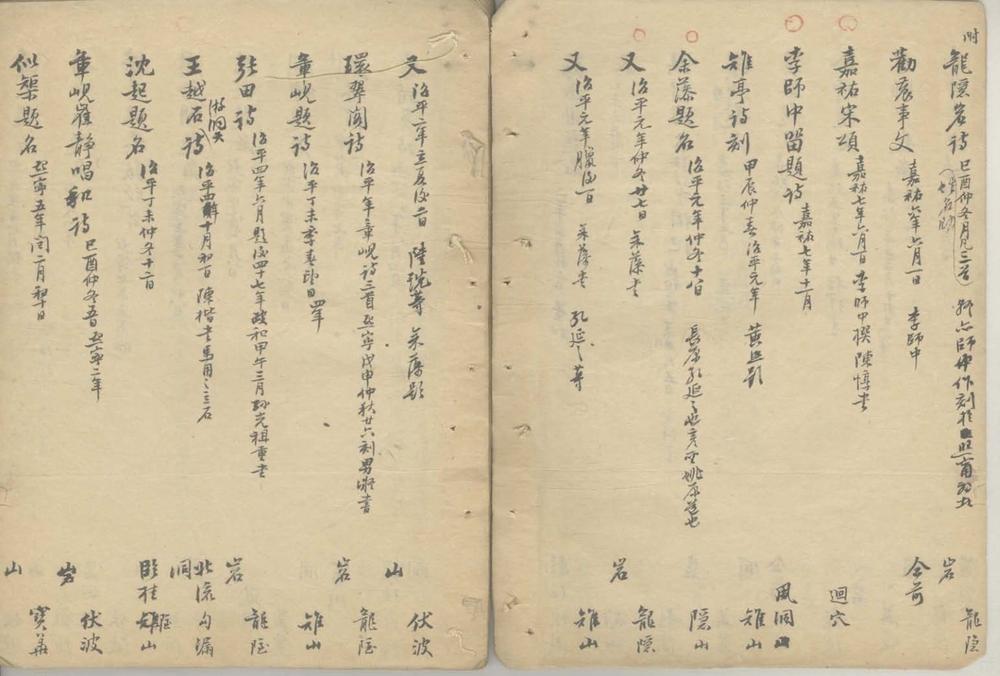 附
龍隱岩詩 己酉仲冬月 三首 龍隱岩
勸農事文 嘉祐六年六月一日 李師中 仝前
嘉祐宋頌 嘉祐七年六月 日 李師中撰 陳惇書 迴穴
李師中留題詩 嘉祐七年十一月 風洞山
雉亭詩刻 甲辰仲春治平元年 黃 題 雉山
余藻題名 治平元年仲冬十 日 長原孔延之 隱山
又 治平元年仲冬廿七日 余藻書 龍隱岩
又 治平元年臘後一日 余藻書 孔延之等 雉山
又 治平二年立夏後 日 陸詵等 余藻題 伏波山
環翠閣詩 治平 年章峴詩三首 熙寧戊申仲秋廿六刻 男 書 龍隱岩
章峴題詩 治平丁未季春 日 四年 雉山
張田詩 治平四年六月題後四十七年政和甲午三月孫光祖重書 龍隱岩
王越石詩 治平四年十月初一日 陳楷書 馬用之立石 北流勾漏洞
沈起題名 治平丁未仲冬十二日 臨桂雉山
章峴崔靜唱和詩 己酉仲冬 熙寧二年 伏波岩
似槩題名 熙寧五年閏 月初十日 寶華山